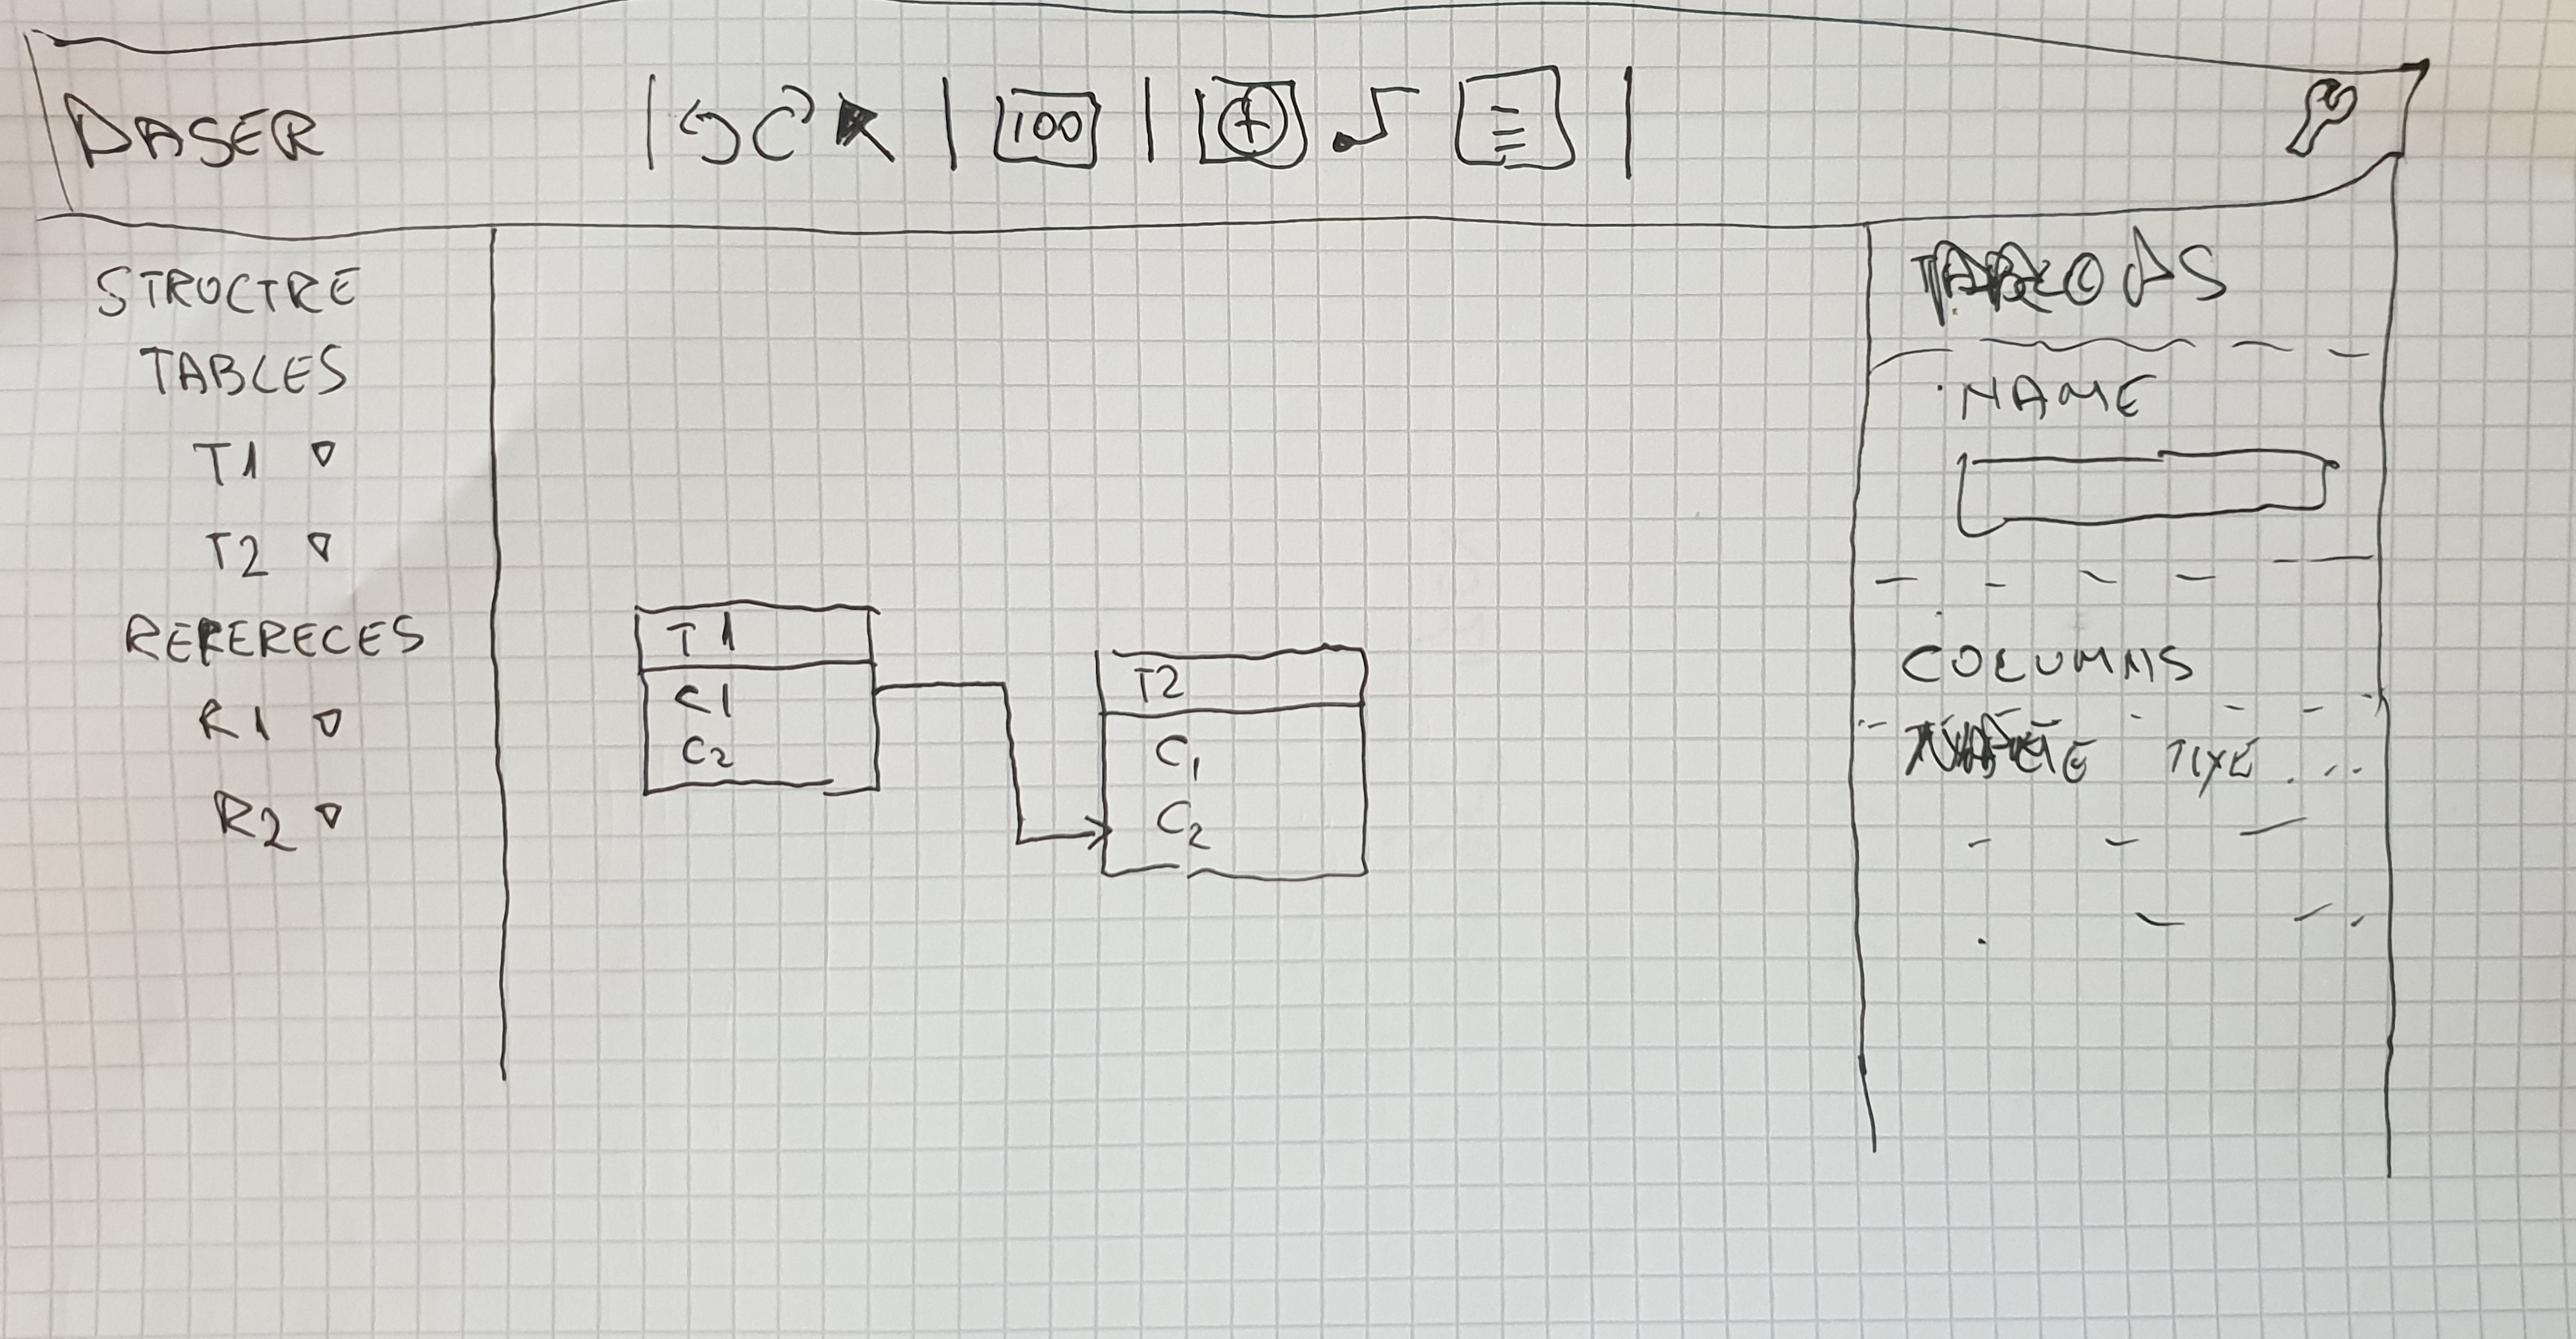 DASER
100
STRUCTRE
TABLES
T1
T2
REFERECES
R1
R2
T1
C1
C2
T2
C1
C2
NAME
COLUMNS